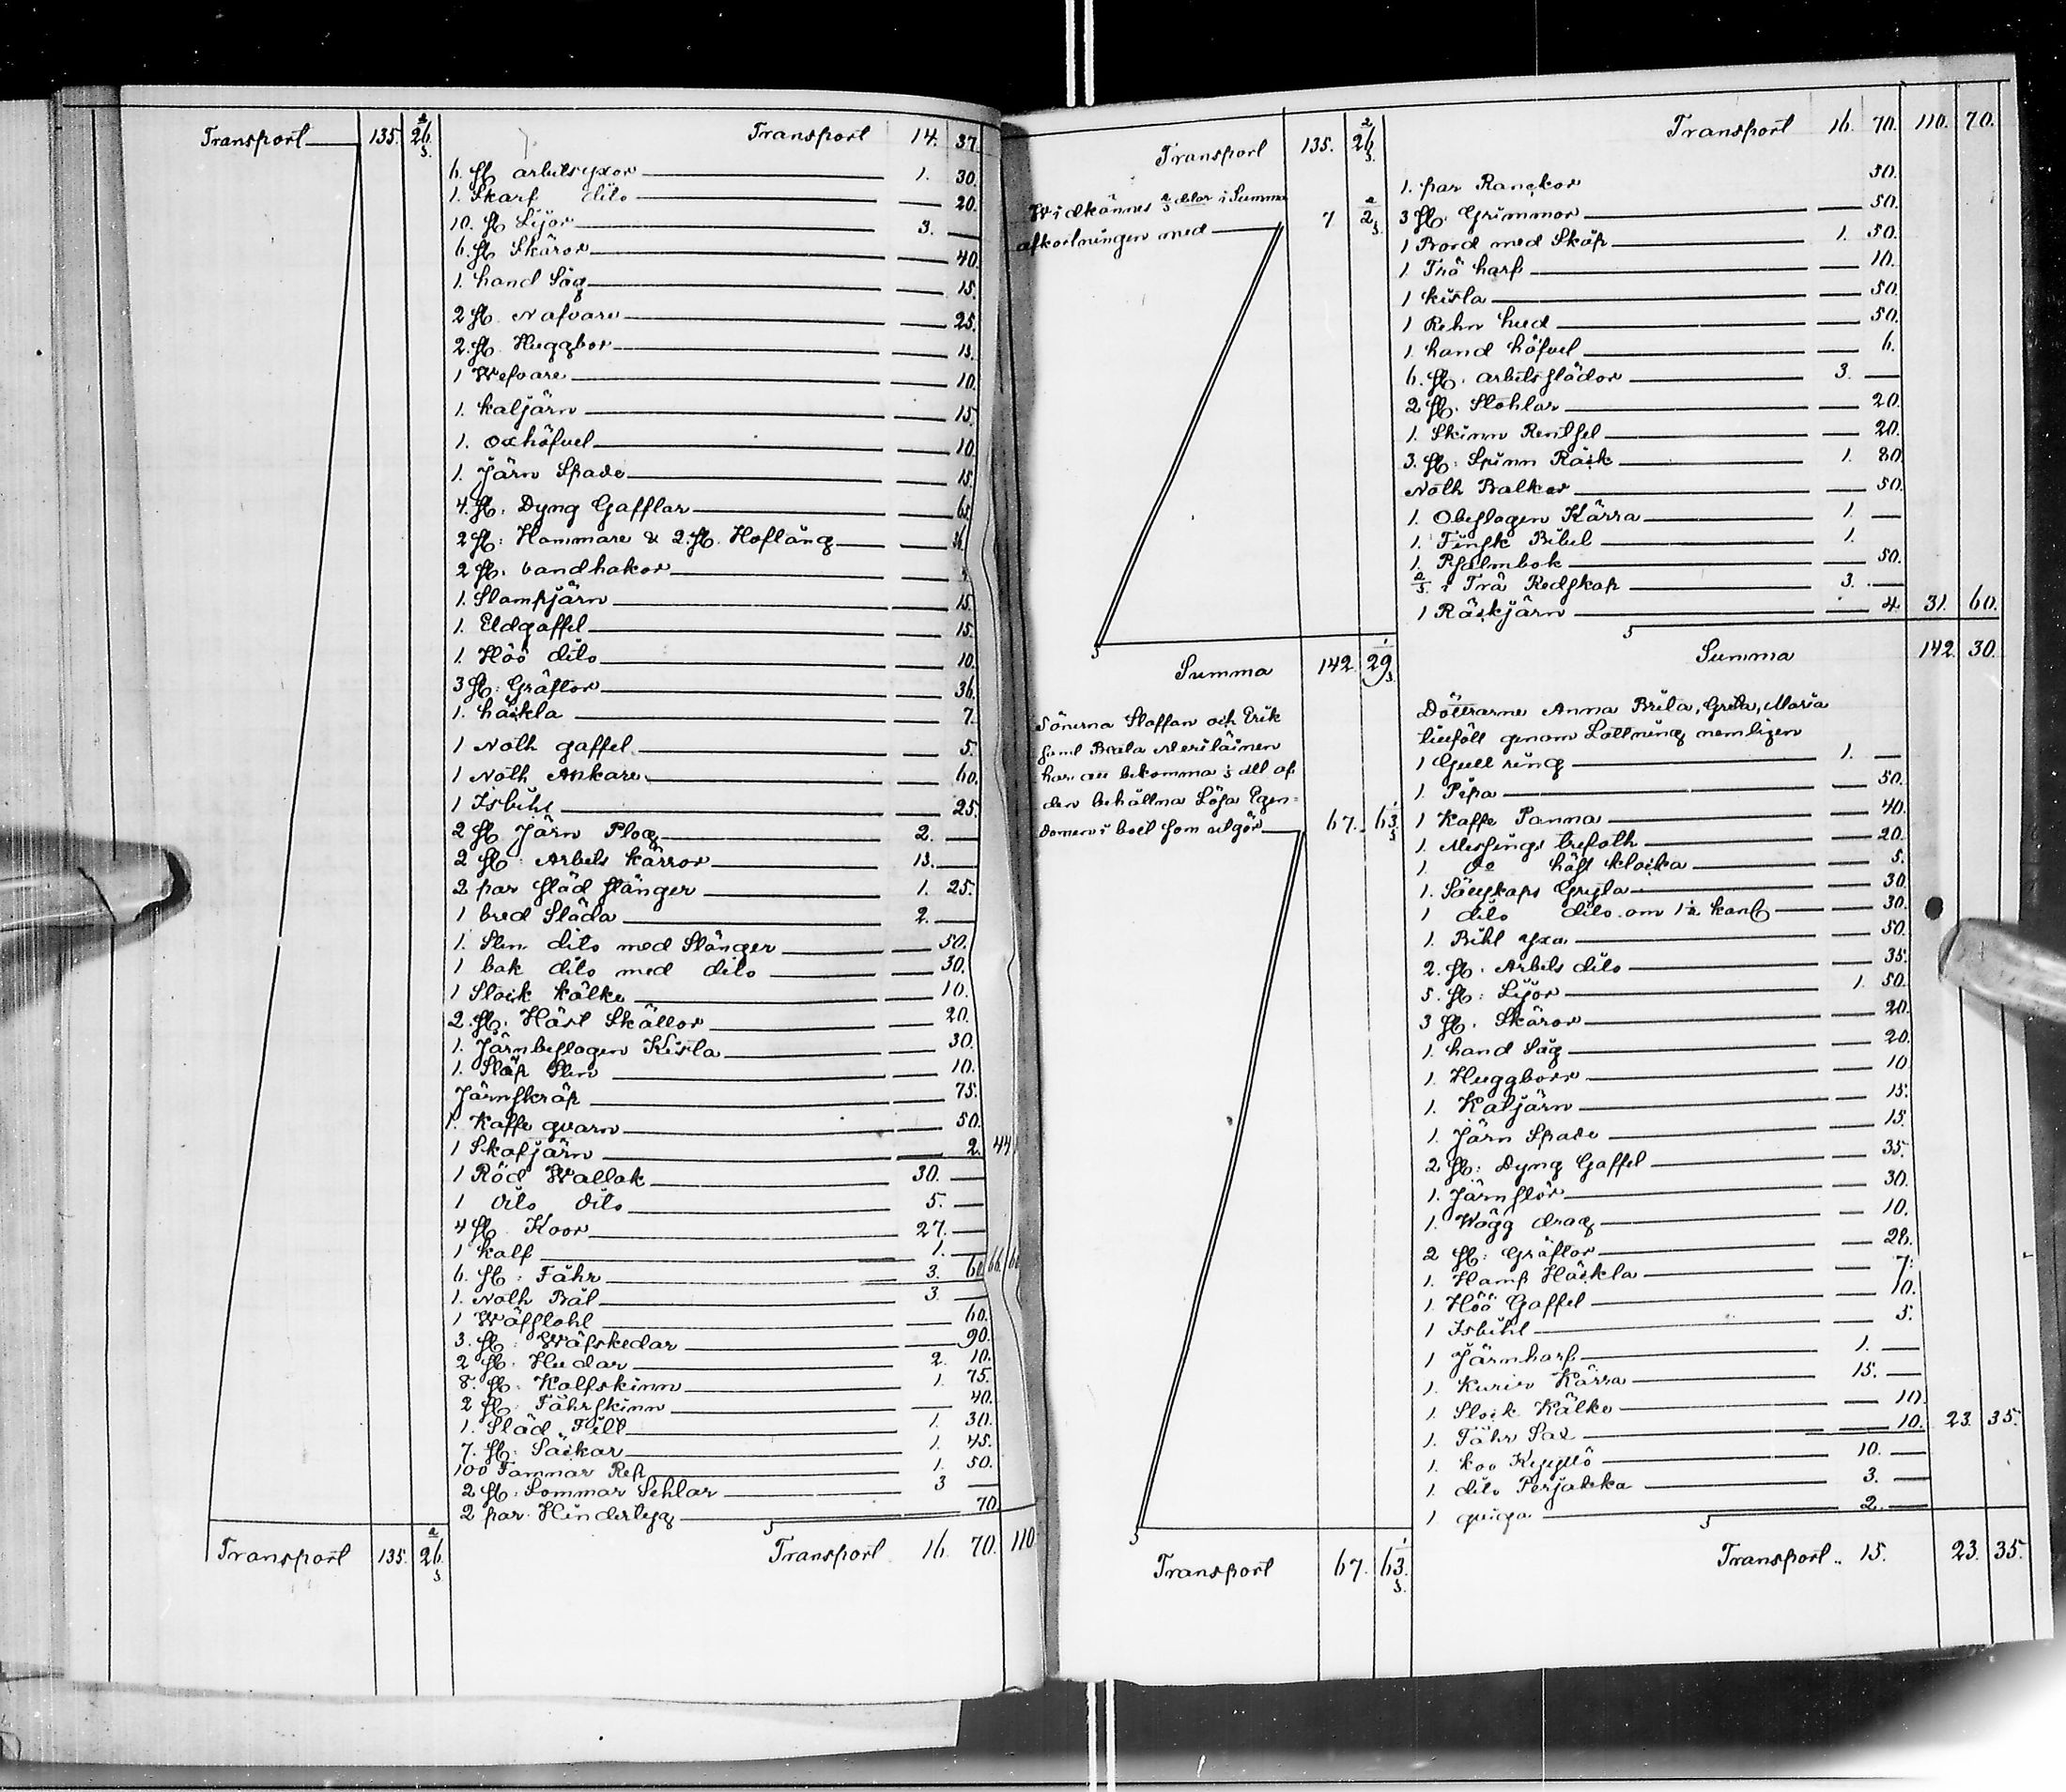 Transport 135. 26 2/3.
Transport 14. 37.
6. st arbetsyxor 1. 30.
1. Skarf dito 20.
10. st Lijor 3.
6. st Skäror 40.
1. hand Såg 15.
2 st. Nafvare 25.
2. st. Huggbor 13.
1 Wefvare 10.
1. kaljärn 15.
1. oxhöfvel 10.
1. Järn Spade 15.
4. st. Dyng Gafflar
2 st: Hammare & 2. st. Hoftång
2 st. bandhakor
1. Stampjärn 15.
1. Eldgaffel 15.
1. Höö dito 10.
3 st: Gräftor 36.
1. häckla 7.
1 Noth gaffel 5.
1 Noth Ankare 60.
1 Isbihl 25.
2 st Järn Plog 2.
2 st: Arbets kärror 13.
2 par släd stänger 1. 25.
1 bred Släda 2.
1. Sten dito med Stänger 50.
1 bak dito med dito 30.
1 Stock kälke 10.
2. st: Häst Skällor 20.
1. Järnbeslagen Kista 30.
1. Slip Sten 10.
Järnskräp 75.
1. Kaffe qvarn 50.
1 Skafjärn 2. 44
1 Röd Wallak 30.
1 dito dito 5.
4 st. Koor 27.
1 kalf 1.
6. st: Fåhr 3. 60. 66. 60
1. Noth Båt 3.
1 Wäfstohl 60.
3. st: Wäfskedar 90.
2 st: Hudar 2. 10.
8. st: Kalfskinn 1. 75.
2 st: Fåhrskinn 40.
1. Släd Fäll 1. 30.
7. st: Säckar 1. 45.
100 Famnar Rep 1. 50.
2 st: Sommar Sehlar 3
2 par Hindertyg 70.
Transport 135. 26 2/3.
Transport 16. 70. 110
Transport 135. 26 2/3.
Widkännes 2/3 delar i Summa
afkortningen med 7 2 2/3.
Summa 142. 29 1/3.
Sönerna Staffan och Erik
samt Beata Meriläinen
har att bekomma del af
den behållna Lösa Egen=
domen i boet som utgör 67. 63 1/3
Transport 67. 63 1/3.
Transport 16. 70. 110. 70.
1. par Ranckor 30.
3 st. Grimmor 50.
1 Bord med Skåp 1. 50.
1. Trä harf 10.
1 kista 50.
1 Rehn hud 50.
1. hand höfvel 6.
6. st. arbetsslädor 3.
2 st. Stohlar 20.
1. Skinn Rentsel 20.
3. st: Spinn Råck 1. 80.
Noth Balkar 50.
1. Obeslagen Kärra 1.
1. Finsk Bibel 1.
1. Psalmbok 50.
2/3. i Trä Redskap 3.
1 Räckjärn 4. 31. 60.
Summa 142. 30.
Döttrarne Anna Brita, Greta, Maria
tillföll genom Lottning nemligen
1 Gull ring 1.
1. Pipa 50.
1 Kaffe Panna 40.
1. Messings trefoth 20.
1 do häst klocka 5.
1. Säuskaps Gryta 30.
1 dito dito om 1½ kann 30.
1. Bihl yxa 50.
2. st. Arbets dito 35.
5. st: Lijor 1. 50.
3 st. Skäror 20.
1. hand Såg 20.
1. Huggborr 10
1. Kaljärn 15.
1. Järn Spade 15.
2 st: Dyng Gaffel 35.
1. Järnstör 30.
1. Wägg drag 10.
2 st: Gräftor 28.
1. Hamp Häckla 7.
1. Höö Gaffel 10.
1 Isbihl 5.
1 Järnharf 1.
1. Kurir Kärra 15.
1. Stock Kälke 10
1. Fåhr Sax 10. 23. 35.
1. koo Kyyttö 10.
1. dito Perjakka 3.
1 quiga 2.
Transport. 15. 23. 35.